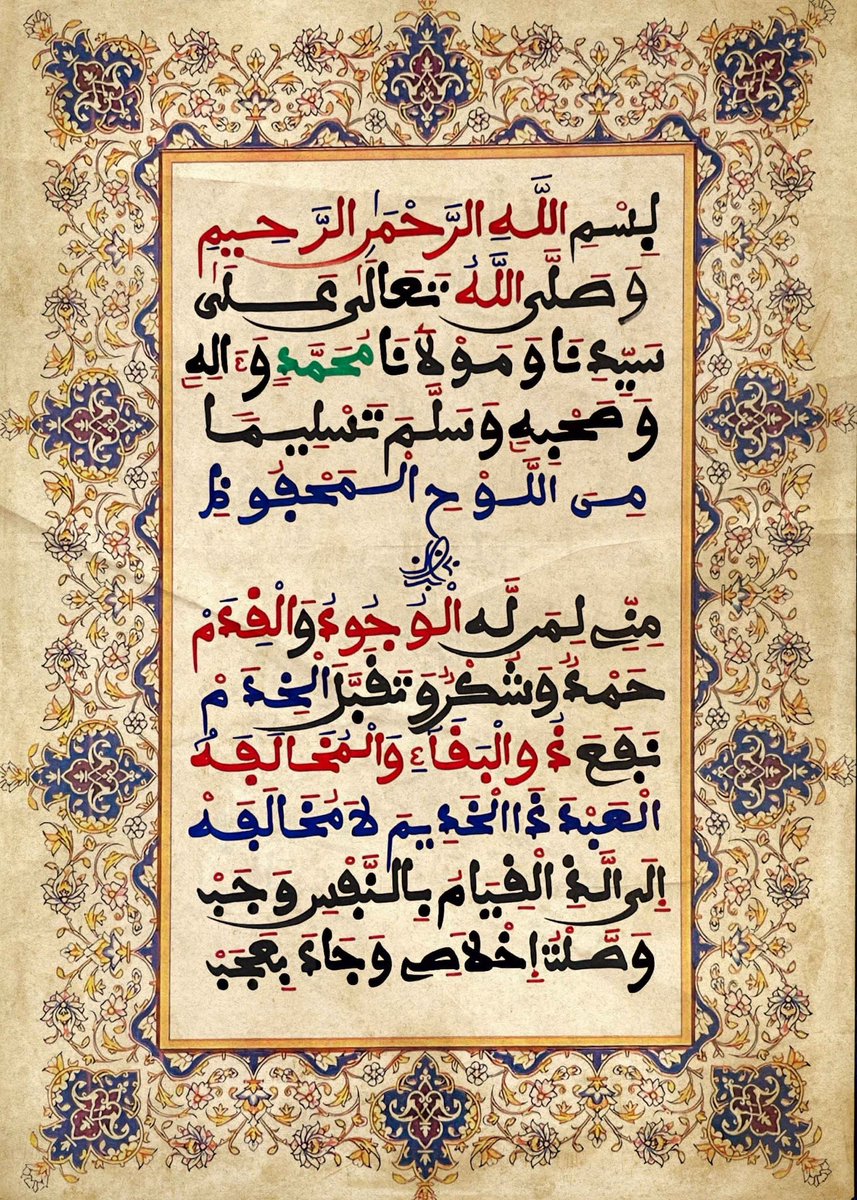 بِسْمِ اللَّهِ الرَّحْمَٰنِ الرَّحِيمِ
وَصَلَّى اللَّهُ تَعَالَى عَلَى
سَيِّدِنَا وَمَوْلَانَا مُحَمَّدٍ وَءَالِهِ
وَصَحْبِهِ وَسَلَّمَ تَسْلِيمَا
مِنَ اللَّوْحِ الْمَحْفُوظِ
مِنِّي لِمَن لَّهُ الْوُجُودُ وَالْقِدَمْ
حَمْدٌ وَشُكْرٌ وَتَقَبَّلَ الْخِدَمْ
نَفَعَ ذُو الْبَقَاءِ وَالْمُخَالَفَهْ
الْعَبْدَ ذَا الْخَدِيمَ لَا مُخَالَفَهْ
إِلَى الَّذِي الْقِيَامُ بِالنَّفْسِ وَجَبْ
وَصَّلْتُ إِخْلَاصِي وَجَادَ بِعَجَبْ